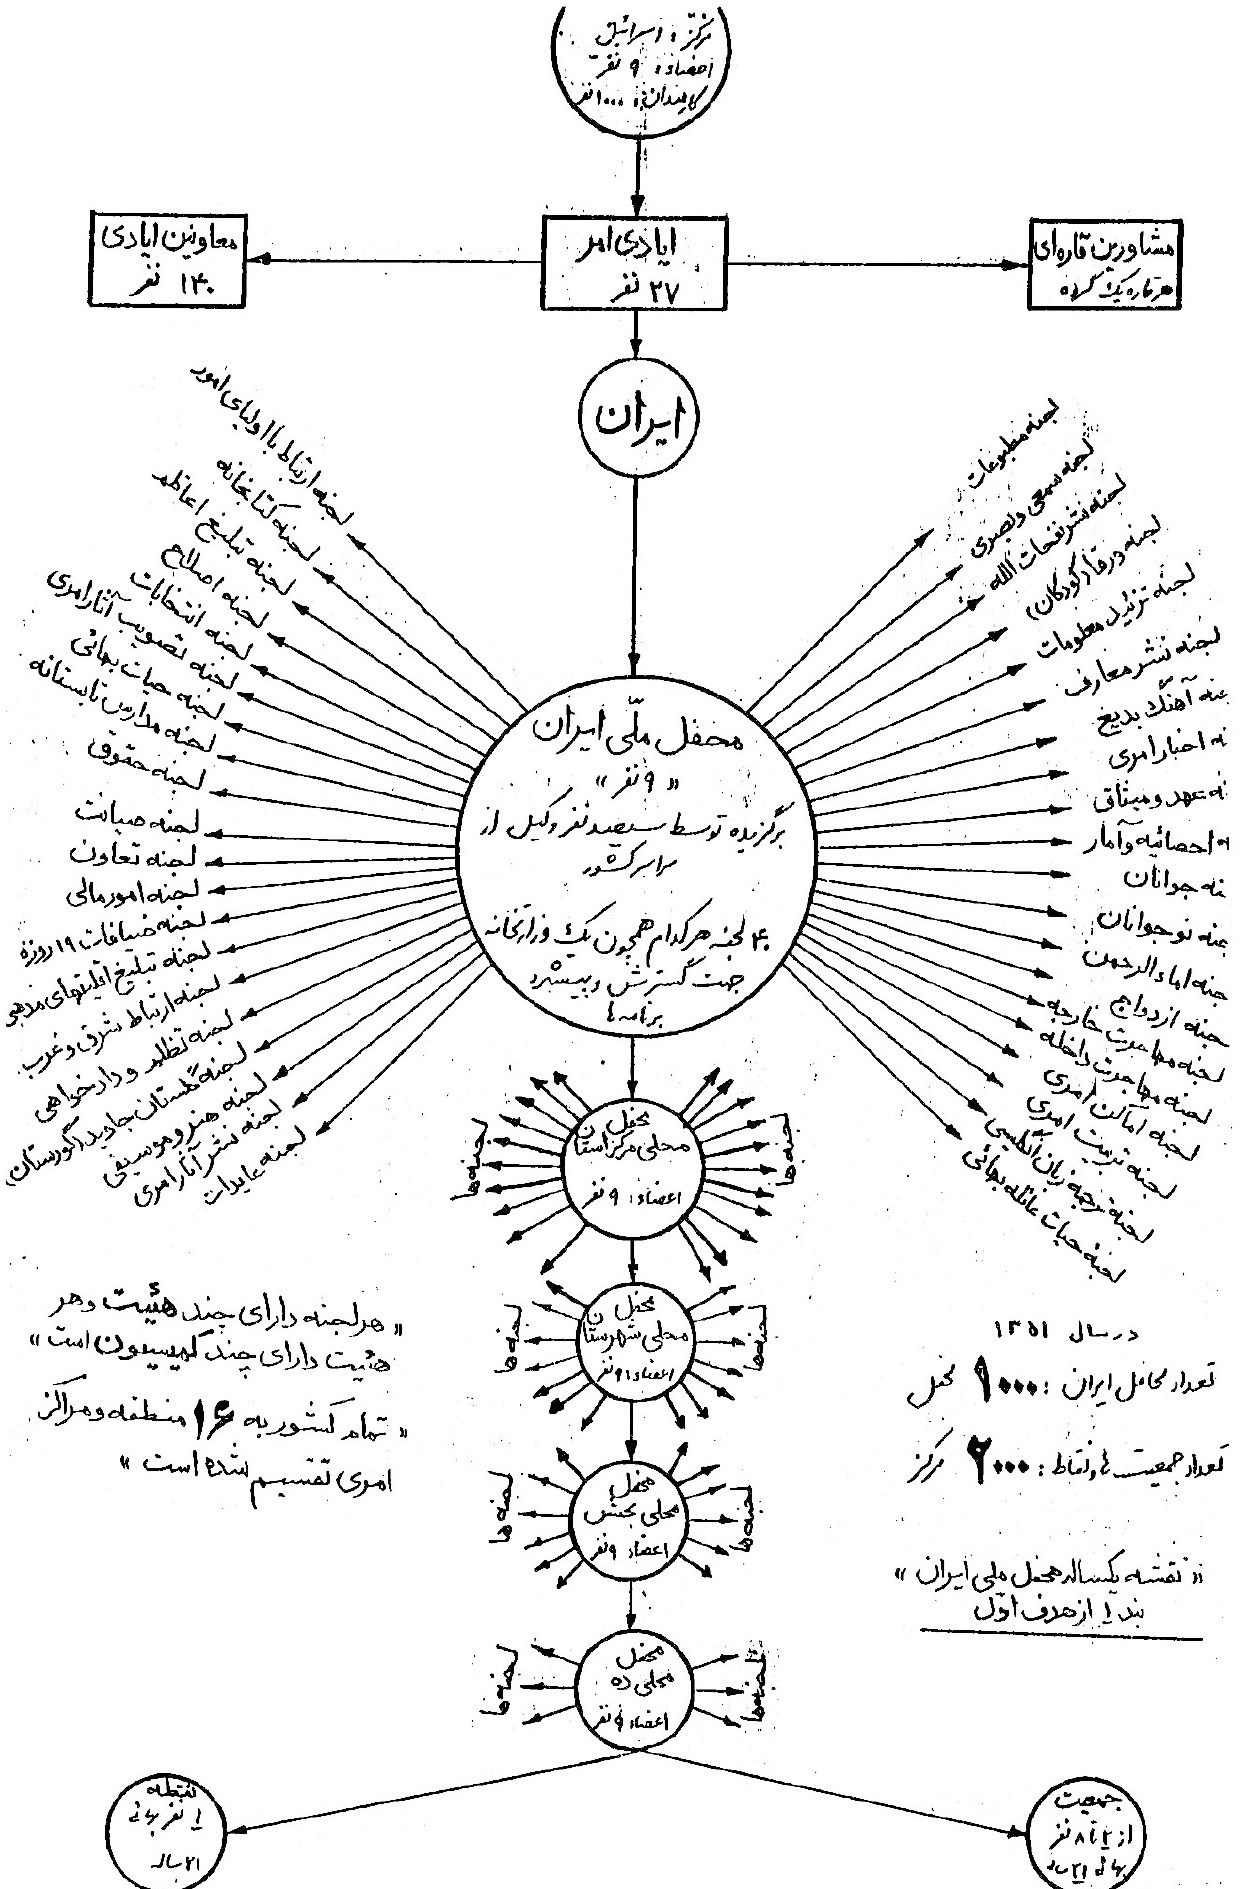 مرکز: اسرائیل
اعضاء: ۹ نفر
کارمندان: ۱۰۰۰ نفر
معاونین ایادی
۱۴۰ نفر
ایادی امر
۲۷ نفر
مشاورین قاره‌ای
هر قاره یک گروه
ایران
لجنه ارتباط با اولیای امور
لجنه کتابخانه
لجنه تبلیغ اعاظم
لجنه اصلاح
لجنه انتخابات
لجنه تصویب آثار امری
لجنه حیات بهائی
لجنه مدارس تابستانه
لجنه حقوق
لجنه صیانت
لجنه تعاون
لجنه امور مالی
لجنه ضیافات ۱۹ روزه
لجنه تبلیغ اقلیتهای مذهبی
لجنه ارتباط شرق و غرب
لجنه تظلم و دادخواهی
لجنه گلستان جاوید (گورستان)
لجنه هنر و موسیقی
لجنه نشر آثار امری
لجنه عایدات
لجنه مطبوعات
لجنه سمعی و بصری
لجنه نشر نفحات الله
لجنه ورقا (کودکان)
لجنه تزئید معلومات
لجنه نشر معارف
جنه آهنگ بدیع
نه اخبار امری
نه عهد و میثاق
نه احصائیه و آمار
نه جوانان
جنه نوجوانان
جنه اماءالرحمن
جنه ازدواج
لجنه مهاجرت خارجه
لجنه مهاجرت داخله
لجنه اماکن امری
لجنه تربیت امری
لجنه ترجمه زبان انگلیسی
لجنه حیات عائله بهائی
محفل ملّی ایران
« ۹ نفر »
برگزیده توسط سیصد نفر وکیل از
سراسر کشور
۴۰ لجنه هر کدام همچون یک وزارتخانه
جهت گسترش و پیشبرد
برنامه‌ها
محفل
محلی مرکز استان
اعضاء: ۹ نفر
لجنه‌ها
لجنه‌ها
محفل
محلی شهرستان
اعضاء: ۹ نفر
لجنه‌ها
لجنه‌ها
محفل
محلی بخش
اعضاء ۹ نفر
لجنه‌ها
لجنه‌ها
محفل
محلی ده
اعضاء ۹ نفر
لجنه‌ها
لجنه‌ها
« هر لجنه دارای چند هیئت و هر
هیئت دارای چند کمیسیون است »
« تمام کشور به ۱۶ منطقه و مراکز
امری تقسیم شده است »
در سال ۱۳۵۱
تعداد محافل ایران : ۱۰۰۰ محفل
تعداد جمعیت‌ها و نقاط : ۲۰۰۰ مرکز
« نقشه یکساله محفل ملی ایران »
بند ۱ از هدف اوّل
نقطه
۱ نفر بهائی
۲۱ ساله
جمعیت
از ۲ تا ۸ نفر
بهائی ۲۱ ساله